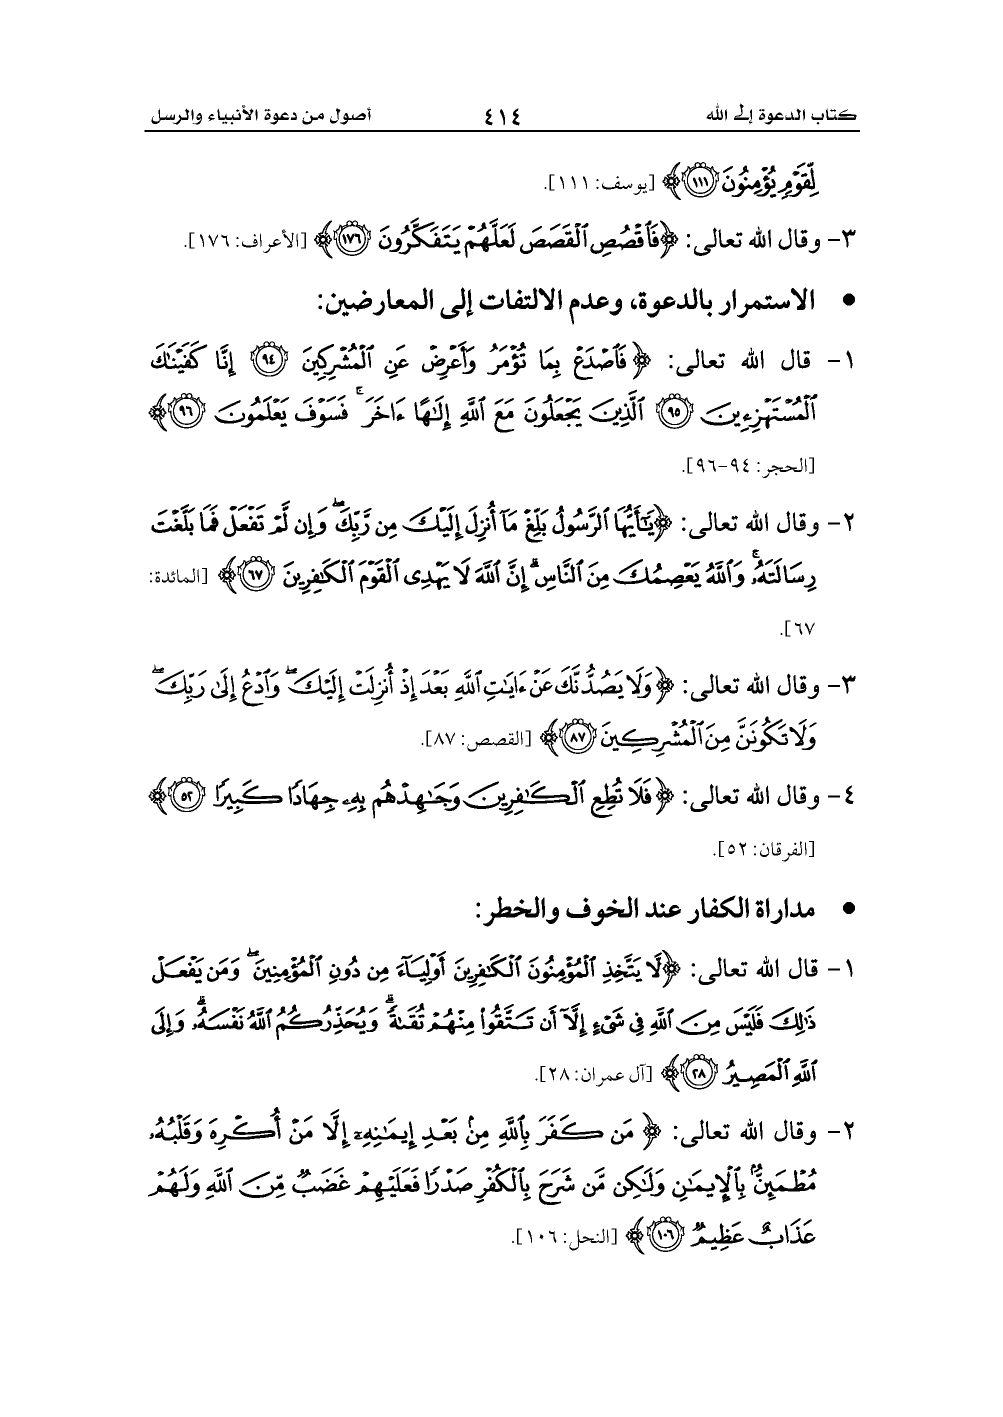 كتاب الدعوة إلى الله ٤١٤ أصول من دعوة الأنبياء والرسل
لِّقَوْمٍ يُؤْمِنُونَ ﴿١١١﴾﴾ [يوسف: ١١١].
٣- وقال الله تعالى: ﴿فَٱقْصُصِ ٱلْقَصَصَ لَعَلَّهُمْ يَتَفَكَّرُونَ ﴿١٧٦﴾﴾ [الأعراف: ١٧٦].
• الاستمرار بالدعوة، وعدم الالتفات إلى المعارضين:
١- قال الله تعالى: ﴿فَٱصْدَعْ بِمَا تُؤْمَرُ وَأَعْرِضْ عَنِ ٱلْمُشْرِكِينَ ﴿٩٤﴾ إِنَّا كَفَيْنَٰكَ
ٱلْمُسْتَهْزِءِينَ ﴿٩٥﴾ ٱلَّذِينَ يَجْعَلُونَ مَعَ ٱللَّهِ إِلَٰهًا ءَاخَرَ ۚ فَسَوْفَ يَعْلَمُونَ ﴿٩٦﴾﴾
[الحجر: ٩٤-٩٦].
٢- وقال الله تعالى: ﴿يَٰٓأَيُّهَا ٱلرَّسُولُ بَلِّغْ مَآ أُنزِلَ إِلَيْكَ مِن رَّبِّكَ ۖ وَإِن لَّمْ تَفْعَلْ فَمَا بَلَّغْتَ
رِسَالَتَهُۥ ۚ وَٱللَّهُ يَعْصِمُكَ مِنَ ٱلنَّاسِ ۗ إِنَّ ٱللَّهَ لَا يَهْدِى ٱلْقَوْمَ ٱلْكَٰفِرِينَ ﴿٦٧﴾﴾ [المائدة:
٦٧].
٣- وقال الله تعالى: ﴿وَلَا يَصُدُّنَّكَ عَنْ ءَايَٰتِ ٱللَّهِ بَعْدَ إِذْ أُنزِلَتْ إِلَيْكَ ۖ وَٱدْعُ إِلَىٰ رَبِّكَ ۖ
وَلَا تَكُونَنَّ مِنَ ٱلْمُشْرِكِينَ ﴿٨٧﴾﴾ [القصص: ٨٧].
٤- وقال الله تعالى: ﴿فَلَا تُطِعِ ٱلْكَٰفِرِينَ وَجَٰهِدْهُم بِهِۦ جِهَادًا كَبِيرًا ﴿٥٢﴾﴾
[الفرقان: ٥٢].
• مداراة الكفار عند الخوف والخطر:
١- قال الله تعالى: ﴿لَّا يَتَّخِذِ ٱلْمُؤْمِنُونَ ٱلْكَٰفِرِينَ أَوْلِيَآءَ مِن دُونِ ٱلْمُؤْمِنِينَ ۖ وَمَن يَفْعَلْ
ذَٰلِكَ فَلَيْسَ مِنَ ٱللَّهِ فِى شَىْءٍ إِلَّآ أَن تَتَّقُوا۟ مِنْهُمْ تُقَىٰةً ۗ وَيُحَذِّرُكُمُ ٱللَّهُ نَفْسَهُۥ ۗ وَإِلَى
ٱللَّهِ ٱلْمَصِيرُ ﴿٢٨﴾﴾ [آل عمران: ٢٨].
٢- وقال الله تعالى: ﴿مَن كَفَرَ بِٱللَّهِ مِنۢ بَعْدِ إِيمَٰنِهِۦٓ إِلَّا مَنْ أُكْرِهَ وَقَلْبُهُۥ
مُطْمَئِنٌّۢ بِٱلْإِيمَٰنِ وَلَٰكِن مَّن شَرَحَ بِٱلْكُفْرِ صَدْرًا فَعَلَيْهِمْ غَضَبٌ مِّنَ ٱللَّهِ وَلَهُمْ
عَذَابٌ عَظِيمٌ ﴿١٠٦﴾﴾ [النحل: ١٠٦].